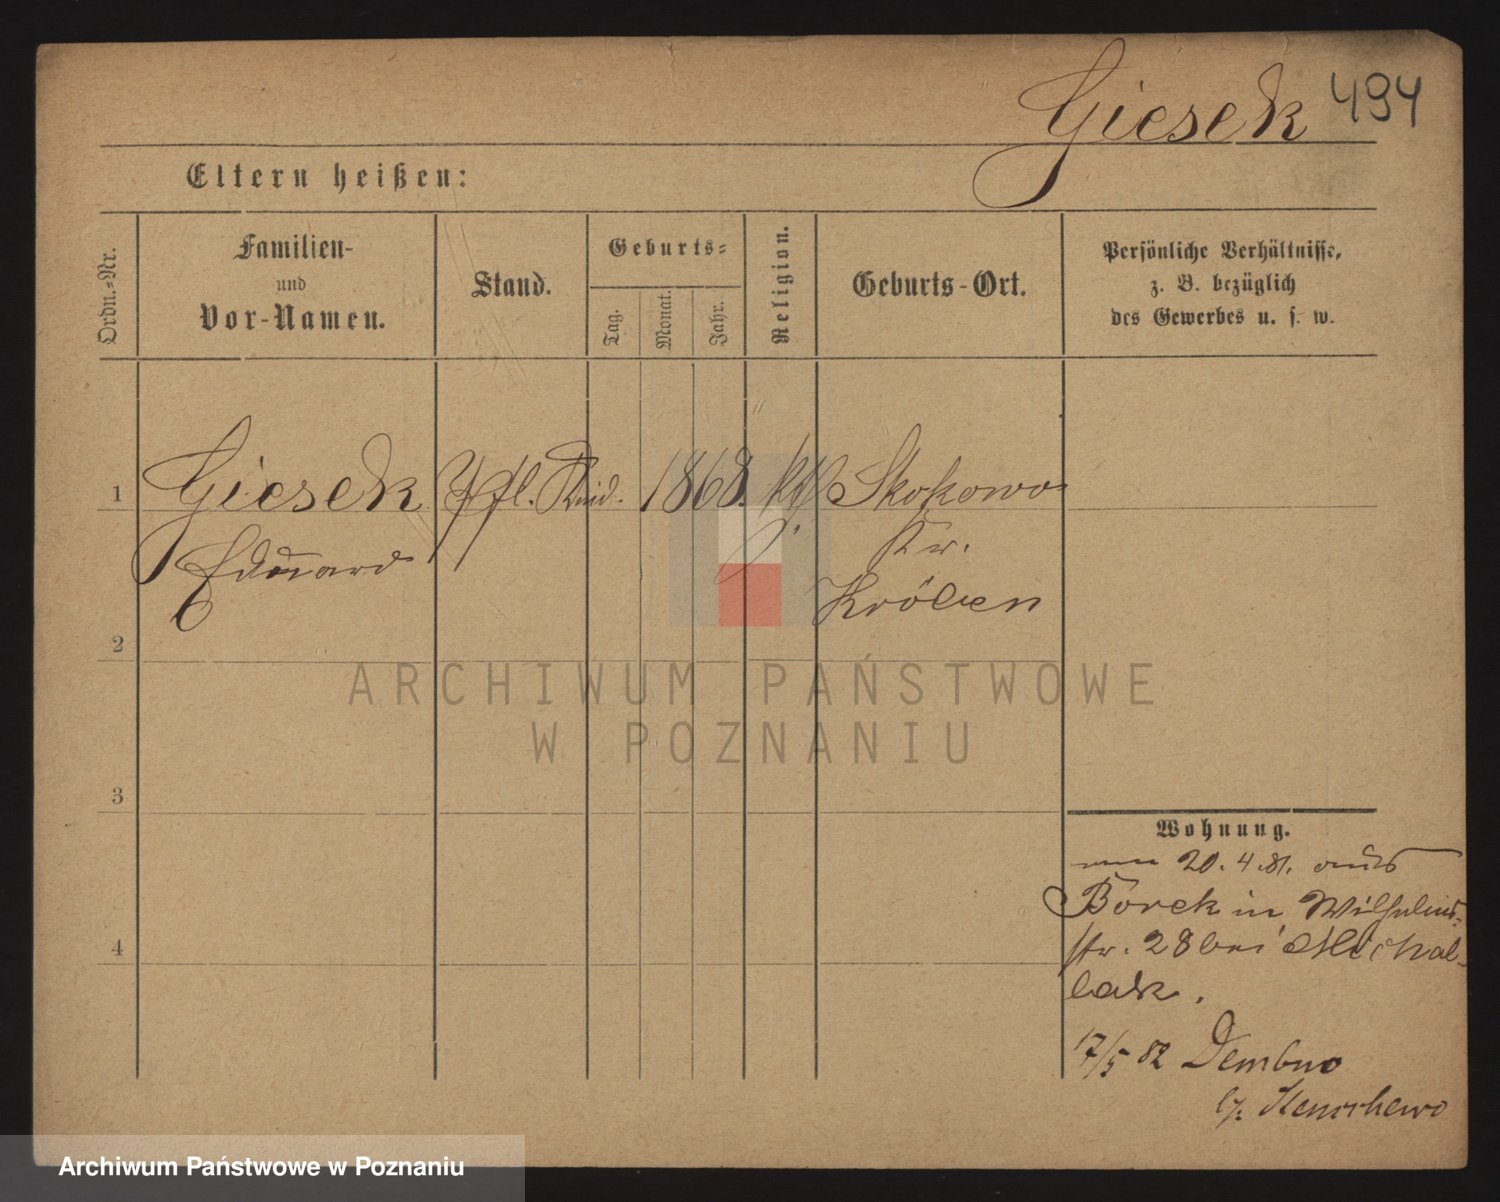 Giesek 494
Eltern heißen:
Ordn.-Nr.
Familien-
und
Vor-Namen.
Stand.
Geburts-
Tag.
Monat.
Jahr.
Religion.
Geburts-Ort.
Persönliche Verhältnisse,
z. B. bezüglich
des Gewerbes u. s. w.
1 Giesek 1868. kth Skokowo
Eduard Kr.
Kröben
2
3
4
ARCHIWUM PAŃSTWOWE
W POZNANIU
Wohnung.
20.4.81. aus
Borek in Wilhelms-
str. 28 bei Michal-
lak.
17/5 82 Dembno
Archiwum Państwowe w Poznaniu